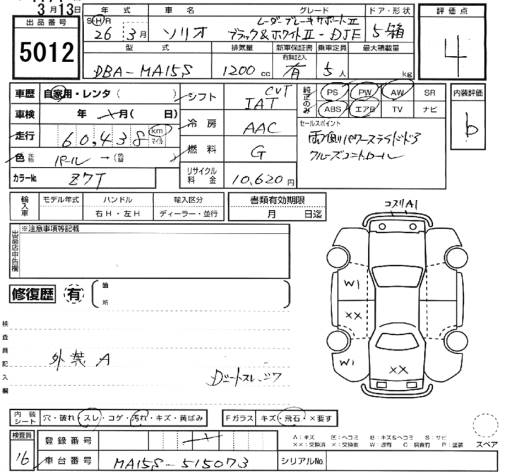 3月13日
出品番号
5012
年式
車名
グレード
ドア・形状
SHR
26年3月
ソリオ
レーダーブレーキサポートⅡ
ブラック&ホワイトⅡ-DJE
5箱
型式
排気量
新車保証書
有無記入
乗車定員
最大積載量
DBA-MA15S
1200cc
有
5人
kg
評価点
4
内装評価
b
車歴
自家用・レンタ( )
車検
年 月( 日)
走行
60,438
km
マイル
色
元色
パール
→(色替 )
カラーNo.
Z7T
シフト
CVT
IAT
冷房
AAC
燃料
G
リサイクル料金
10,620円
純正のみ
PS PW AW SR
ABS エアB TV ナビ
セールスポイント
両側パワースライドドア
クルーズコントロール
輸入車
モデル年式
ハンドル
右H・左H
輸入区分
ディーラー・並行
書類有効期限
月 日迄
出品店申告欄
※注意事項等記載
修復歴
有
箇所
検査員記入欄
外装A
シートスレシワ
コスリA1
W1
XX
W1
W1
XX
XX
内装シート
穴・破れ・スレ・コゲ・汚れ・キズ・黄ばみ
Fガラス
キズ・飛石・×要す
検査員
16
登録番号
車台番号
MA15S-515073
シリアルNo.
スペア